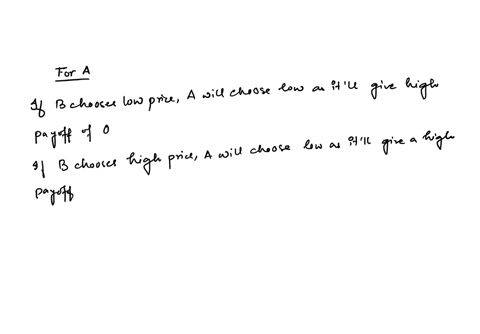 For A
If B chooses low price, A will choose low as it'll give high
payoff of 0
If B chooses high price, A will choose low as it'll give a high
payoff